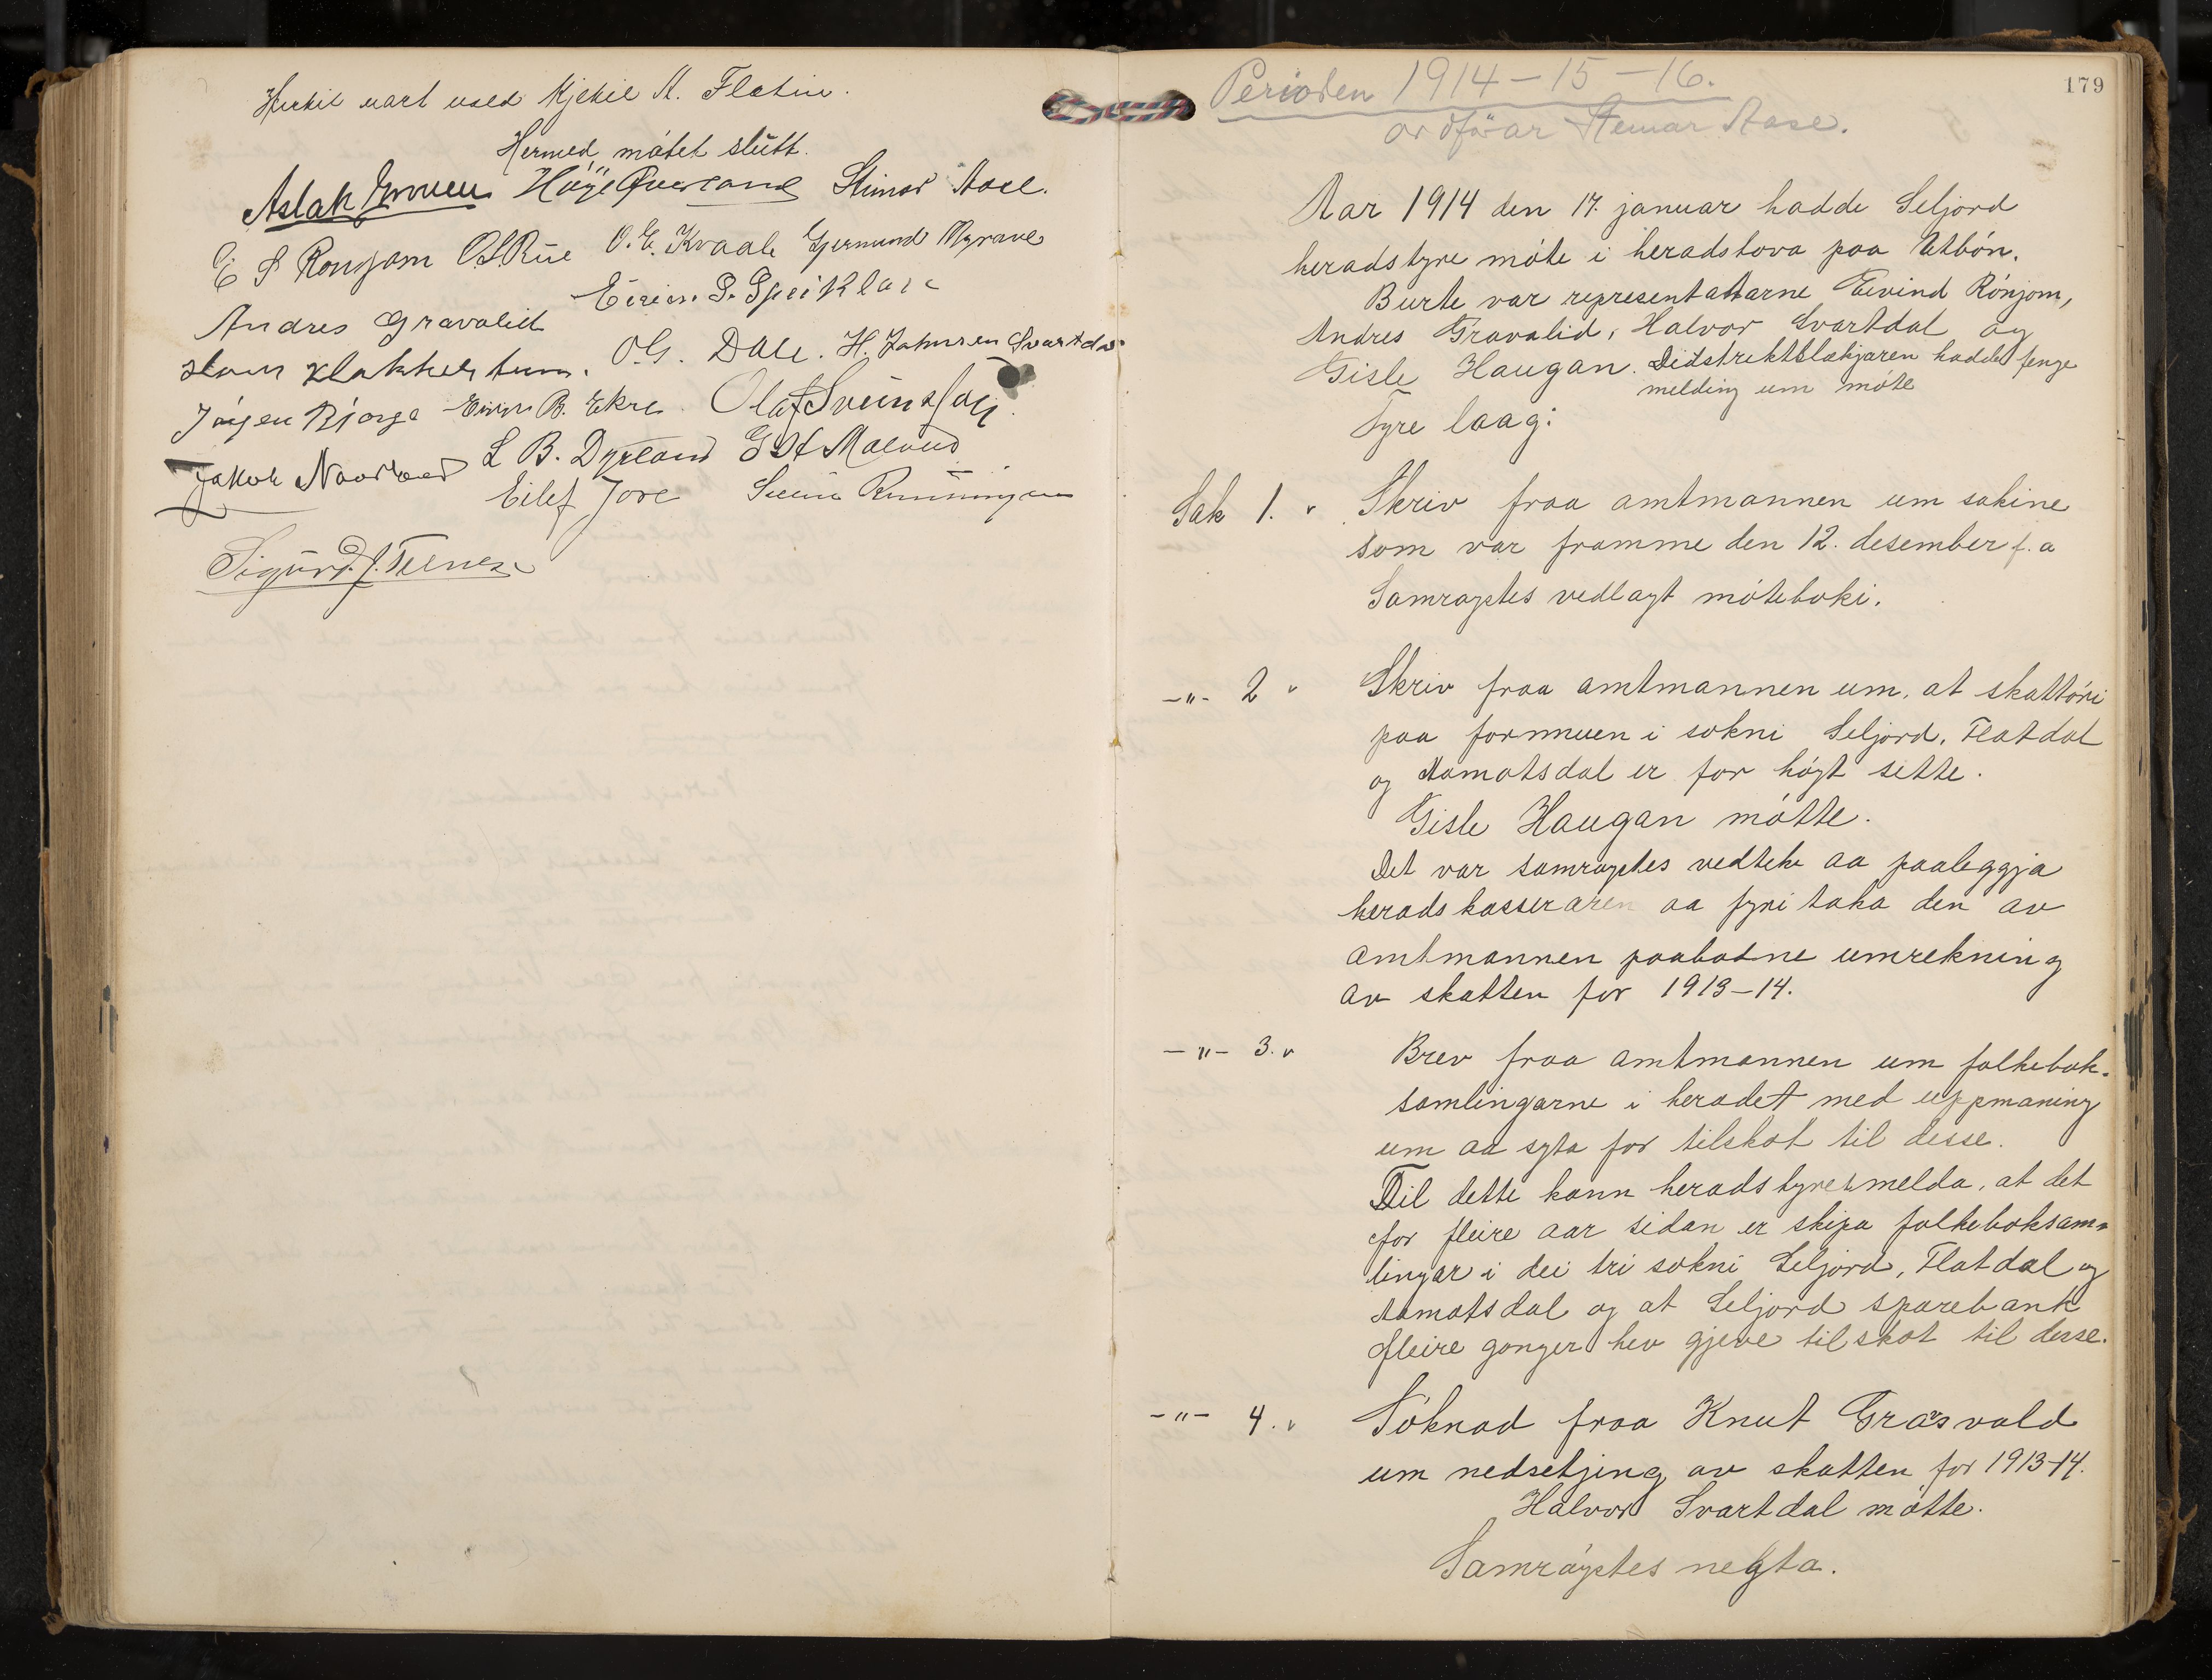 vart vald Kjetil K. Flatin.
Hermed mötet slutt.
Aslak Höye Qverland Steinar Aase.
E S Ronjom O.S.Rue O. G. Kvaale Gjermund Myrane
Eirik
Andres Gravalid
O.G. Dale. H. Svartdal
Björge B. Ekre Olaf Svein
Jakob L B. Dyrland
Eilef Jore Svein
Sigurd
179
Perioden 1914-15-16.
ordförar Steinar Aase.
Aar 1914 den 17. januar hadde Seljord
heradstyre möte i heradstova paa Utbön.
Burte var representattarne Eivind Rönjom,
Andres Gravalid, Halvor Svartdal og
Gisle Haugan. Didstriktslækjaren hadde fenge
melding um möte
Fyre laag:
Sak 1. Skriv fraa amtmannen um sakine
som var framme den 12. desember f. a
Samröystes vedlagt möteboki.
-"- 2 Skriv fraa amtmannen um, at skattöri
paa formuen i sokni Seljord, Flatdal
og Aamotsdal er for högt sette.
Gisle Haugan mötte.
Det var samröystes vedteke aa paaleggja
heradskasseraren aa fyritaka den av
amtmannen paabodne umrekning
av skatten for 1913-14.
-"- 3. Brev fraa amtmannen um folkebok-
samlingarne i heradet med uppmaning
um aa syta for tilskot til desse.
Til dette kann heradstyret melda, at det
for fleire aar sidan er skipa folkeboksam-
lingar i dei tri sokni Seljord, Flatdal og
Aamotsdal og at Seljord sparebank
fleire gonger hev gjeve tilskot til desse.
-"- 4. Söknad fraa Knut Grasvald
um nedsetjing av skatten for 1913-14.
Halvor Svartdal mötte.
Samröystes negta.